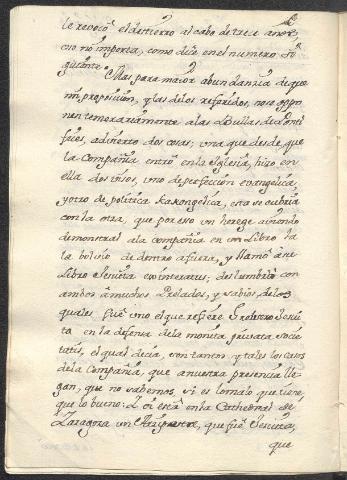 le revocò el destierro al cabo de trece años,
eso no importa, como dice en el numero Si-
guiente. Mas para maior abundanzia de que
mi proposicion, y las de los referidos, no se oppo-
nen temerariamente a las Bullas de Ponti-
fices, advierto dos cosas; una que desde, que
la Compañia entrò en la Iglesia, hizo en
ella dos visos, uno de perfeccion evangelica,
y otro de politica Kakongelica, esta se cubria
con la otra, que por eso un herege aviendo
demonstrar a la Compañia en un Libro la
la bolviò de dentro afuera, y llamò a el
Libro Jesuita exinteratus; deslumbrò con
ambos à muchos Prelados, y Sabios, de los
quales. Fuè uno el que refiere Gretzero Jesui
ta en la defensa de la monita privata Socie-
tatis, el qual decia, son tantos, y tales los casos
de la Compañia, que a nuestra presencia lle
gan, que no sabemos, si es lo malo que tiene,
que lo bueno: Loi està en la Cathedral de
Zaragoza un que fuè Jesuita,
que